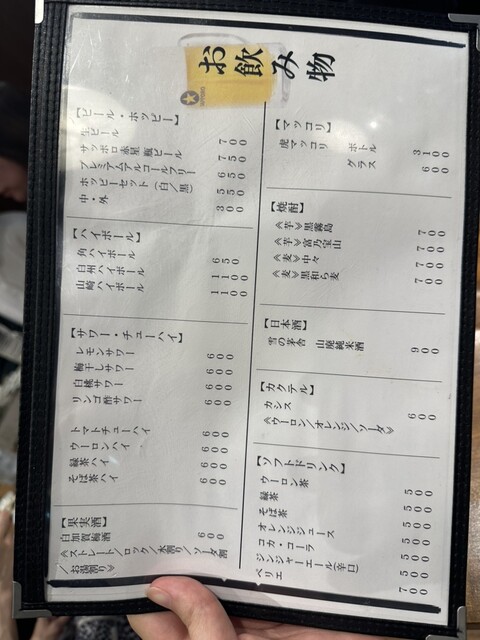 お飲み物
【ビール・ホッピー】
生ビール 700
サッポロ赤星 瓶ビール 750
プレミアムアルコールフリー 650
ホッピーセット(白/黒) 550
中・外 300
【ハイボール】
角ハイボール 650
白州ハイボール 1100
山崎ハイボール 1100
【サワー・チューハイ】
レモンサワー 600
梅干しサワー 600
白桃サワー 600
リンゴ酢サワー 600
トマトチューハイ 600
ウーロンハイ 600
緑茶ハイ 600
そば茶ハイ 600
【果実酒】
白加賀梅酒 600
≪ストレート/ロック/水割り/ソーダ割
/お湯割り≫
【マッコリ】
虎マッコリ ボトル 3100
グラス 600
【焼酎】
≪芋≫黒霧島 700
≪芋≫富乃宝山 700
≪麦≫中々 700
≪麦≫黒和ら麦 700
【日本酒】
雪の茅舎 山廃純米酒 900
【カクテル】
カシス 600
≪ウーロン/オレンジ/ソーダ≫
【ソフトドリンク】
ウーロン茶 500
緑茶 500
そば茶 500
オレンジジュース 500
コカ・コーラ 500
ジンジャーエール(辛口) 500
ペリエ 700